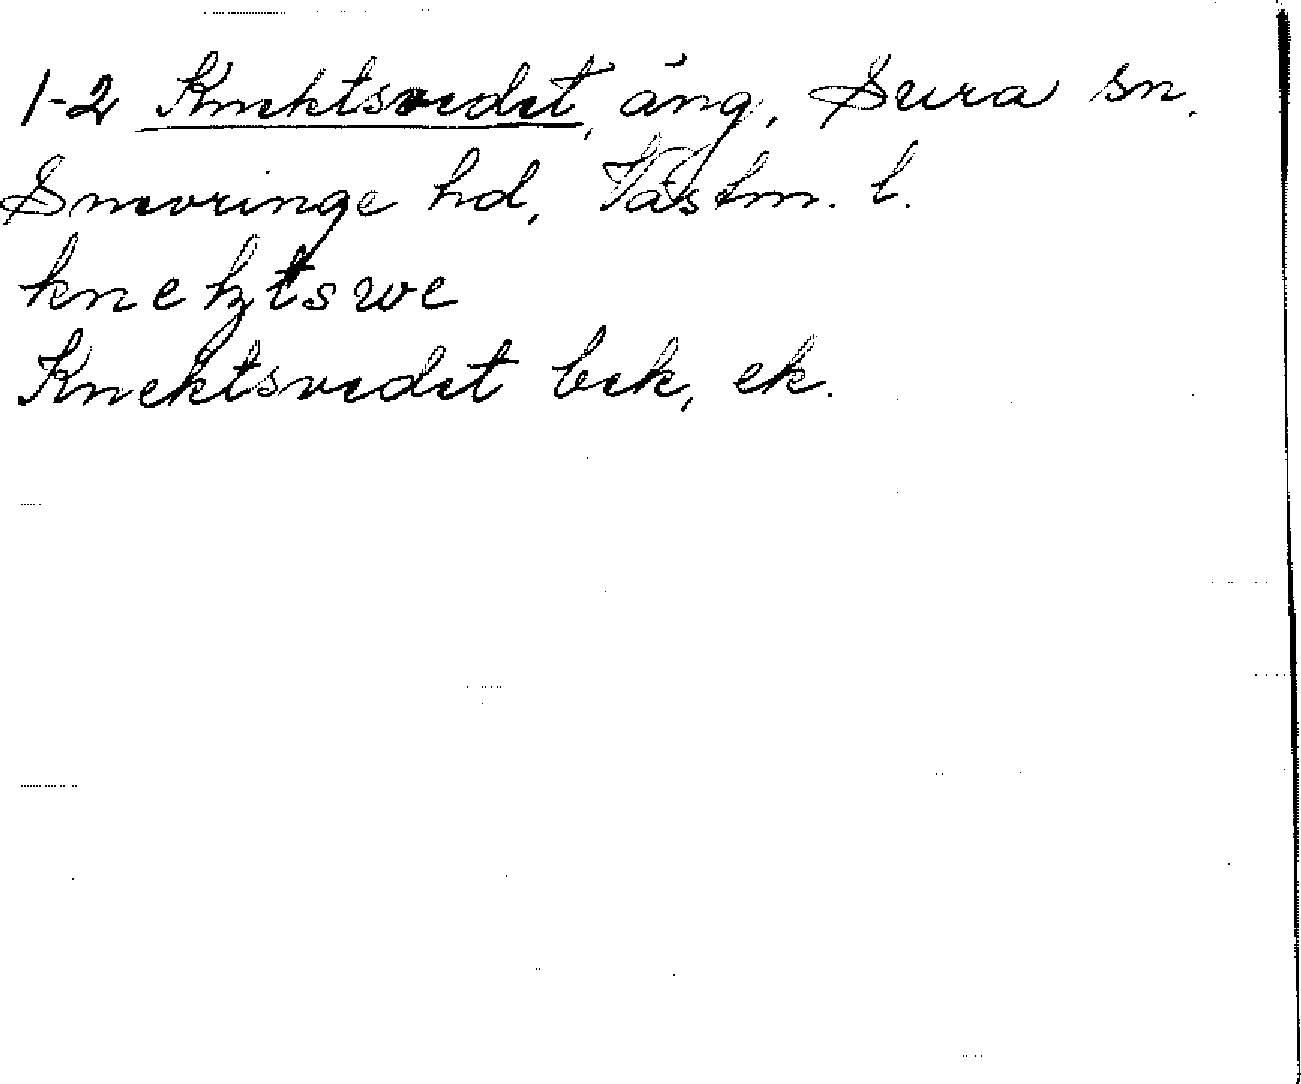 1-2 Knektsvedet, äng, Sura sn,
Snevringe hd, Västm. l.
knektswe
Knektsvedet bek, ek.